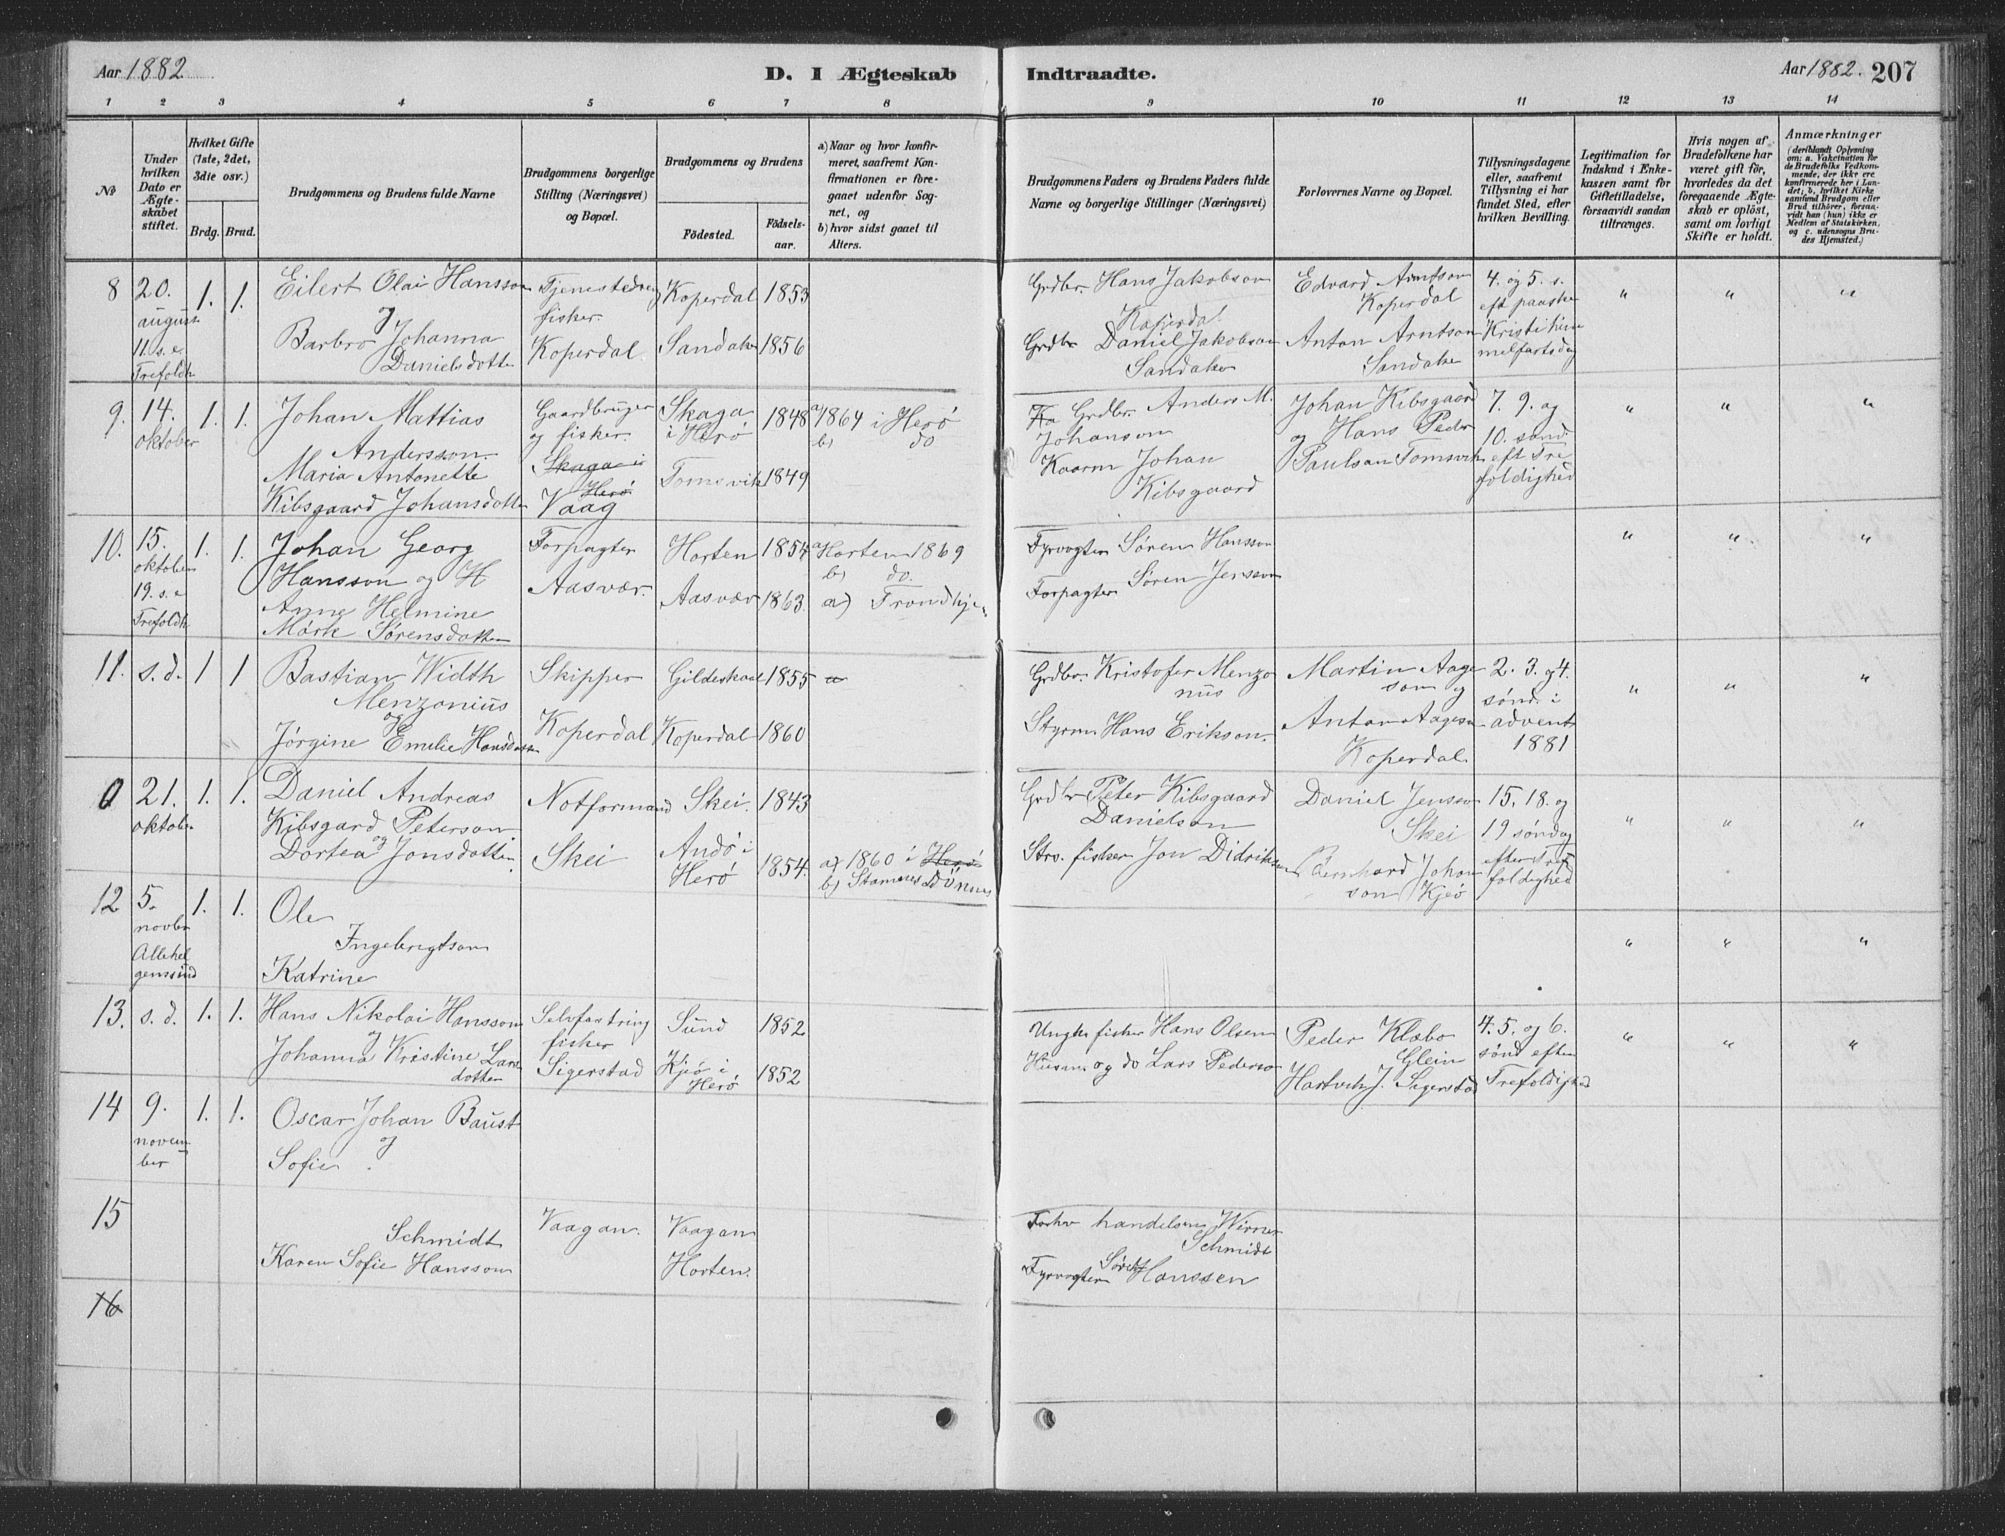 Aar 1882
D. I Ægteskab Indtraadte.
Aar 1882. 207
1 2 3 4 5 6 7 8 9 10 11 12 13 14
No
Under hvilken Dato er Ægteskabet stiftet.
Hvilket Gifte (1ste, 2det, 3die osv.)
Brdg. Brud.
Brudgommens og Brudens fulde Navne
Brudgommens borgerlige Stilling (Næringsvei) og Bopæl.
Brudgommens og Brudens
Födested. Födselsaar.
a) Naar og hvor konfirmeret, saafremt Konfirmationen er foregaaet udenfor Sognet, og
b) hvor sidst gaaet til Alters.
Brudgommens Faders og Brudens Faders fulde Navne og borgerlige Stillinger (Næringsvei)
Forlovernes Navne og Bopæl.
Tillysningsdagene eller, saafremt Tillysning ei har fundet Sted, efter hvilken Bevilling.
Legitimation for Indskud i Enkekassen samt for Giftetilladelse, forsaavidt saadan tiltrænges.
Hvis nogen af Brudefolkene har været gift för, hvorledes da det foregaaende Ægteskab er oplöst, samt om lovligt Skifte er holdt.
Anmærkninger
(deriblandt Oplysning om: a. Vakcination for de Brudefolks Vedkommende, der ikke ere konfirmerede her i Landet; b. hvilket Kirkesamfund Brudgom eller Brud tilhörer, forsaavidt han (hun) ikke er Medlem af Statskirken, og c. udensogns Brudes Hjemsted.)
8 20. august 11. s. e. Trefoldh 1. 1.
Eilert Olai Hansson
og
Barbro Johanna
Danielsdotter
fisker.
Koperdal.
Koperdal 1853
Sandaker 1856
Grdbr. Hans Jakobson
Koperdal
Grdbr Daniel Jakobson
Sandaker
Edvard Arntson
Koperdal
Anton Arntson
Sandaker
4. og 5. s.
eft paaske
Kristi him
melfartsdag
" " "
9. 14. oktober 1. 1.
Johan Mattias
Andersson
Maria Antonette
Kibsgaard Johansdotter
Gaardbruger
og fisker.
Skaga i
Herø
Vaag
Skaga
i Herø 1848
Tomsvik 1849
a) 1864 i Herø
b) do
Ka Grdbr. Anders M.
Johanson
Kaarm Johan
Kibsgaard
Johan Kibsgaard
og Hans Peder
Paulsan Tomsvik
7. 9. og
10. sønd.
eft Tre
foldighed
" " "
10. 15. oktober 19. s. e. Trefoldh 1. 1.
Johan Georg
Hansson og H
Anne Helmine
Mørk Sørensdotter
Forpagter
Aasvær.
Horten 1854
Aasvær 1863.
a) Horten 1869
b) do.
a) Trondhje
Fyrvogter Søren Hansson
Forpagter Søren Jensson
" " "
11. s. d. 1 1
Bastian Width
Menzonius
og
Jørgine Emilie Hansdotter
Skipper
Koperdal
Gildeskaal 1855
Koperdal 1860
a
Grdbr. Kristofer Menzo
nius
Styrm Hans Erikson.
Martin Aage
son og
Anton Aageson
Koperdal
2. 3. og 4.
sønd. i
advent
1881
" " "
0 21. oktober 1. 1.
Daniel Andreas
Kibsgard Peterson
og
Dortea Jonsdotter
Notformand
Skei
Skei. 1843
Andø i
Herø 1854.
a) 1860 i Herø
b) Stamnes Dønnes
Grdbr Peter Kibsgaard
Danielson
Strv. fisker Jon Didrikson
Daniel Jensson
Skei
Bernhard Johan
son Kjeø
15. 18. og
19 søndag
efter Tre
foldighed
" " "
12 5. novbr Allehelgenssund 1. 1.
Ole
Ingebrigtson
Katrine
" " "
13. s. d. 1. 1.
Hans Nikolai Hansson
og
Johanna Kristine Lars
dotter
fisker
Sigerstad
Sund 1852
Kjeø i
Herø 1852
Ungk. fisker Hans Olsen
Husm. og do Lars Pederson
Peder Klæbo
Glein
Hartvik J. Sigerstad
4. 5. og 6.
sønd efter
Trefoldighed
" " "
14 9. november 1. 1.
Oscar Johan Baust
og
Sofie .
15
Schmidt
Karen Sofie Hansson
Vaagan.
Vaagan
Horten.
handelsm Werner
Schmidt
Fyrvogter Søren Hanssen
16